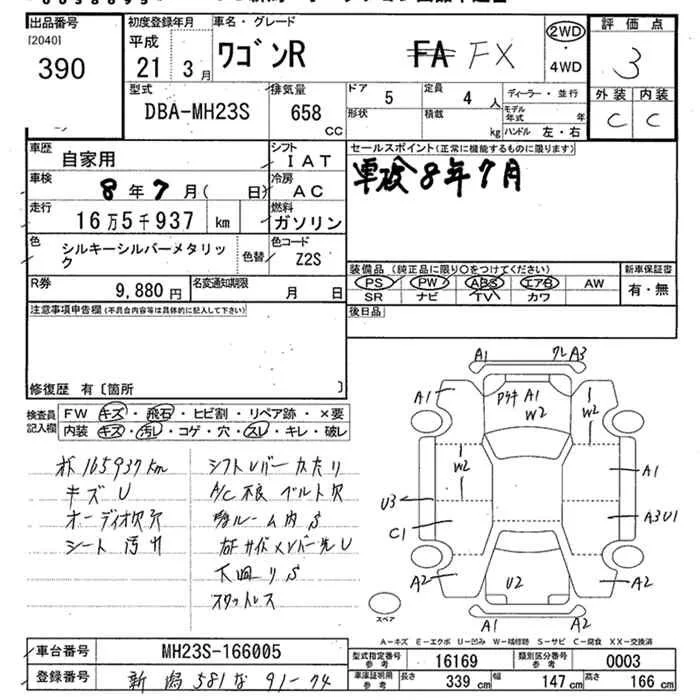 出品番号 初度登録年月 車名・グレード 2WD 評価点
[2040] 平成 ワゴンR FA FX ・ 3
390 21 3月 4WD 外装 内装
型式 排気量 ドア 5 定員 4人 ディーラー・並行 C C
DBA-MH23S 658 CC 形状 積載 kg モデル年式 年
ハンドル 左・右
車歴 自家用 シフト IAT セールスポイント(正常に機能するものに限ります)
車検 8年7月( 日) 冷房 AC 車検8年7月
走行 16万5千937 km 燃料 ガソリン
色 シルキーシルバーメタリック 色替 色コード Z2S
装備品 (純正品に限り○をつけてください) 新車保証書
R券 9,880円 名変通知期限 月 日 PS PW ABS エアB AW 有・無
SR ナビ TV カワ
注意事項申告欄(不具合内容等は具体的に記入して下さい) 後日品
修復歴 有〔箇所 〕
検査員 FW キズ・飛石・ヒビ割・リペア跡・×要
記入欄 内装 キズ・汚レ・コゲ・穴・スレ・キレ・破レ
165937km シフトレバーカタり
キズU A/C不良 ベルト欠
オーディオ欠
シート汚れ
下回りS
スタットレス
A1 A3
A1 A1 W2 W2
W2 A1
U3 A3U1
C1
A2 U2 A2
A2 A2
スペア
A-キズ E-エクボ U-凹み W-補修跡 S-サビ C-腐食 XX-交換済
車台番号 MH23S-166005 型式指定番号 参考 16169 類別区分番号 参考 0003
登録番号 新潟 581 な 91-74 車庫証明用 参考 長さ 339 cm 幅 147 cm 高さ 166 cm